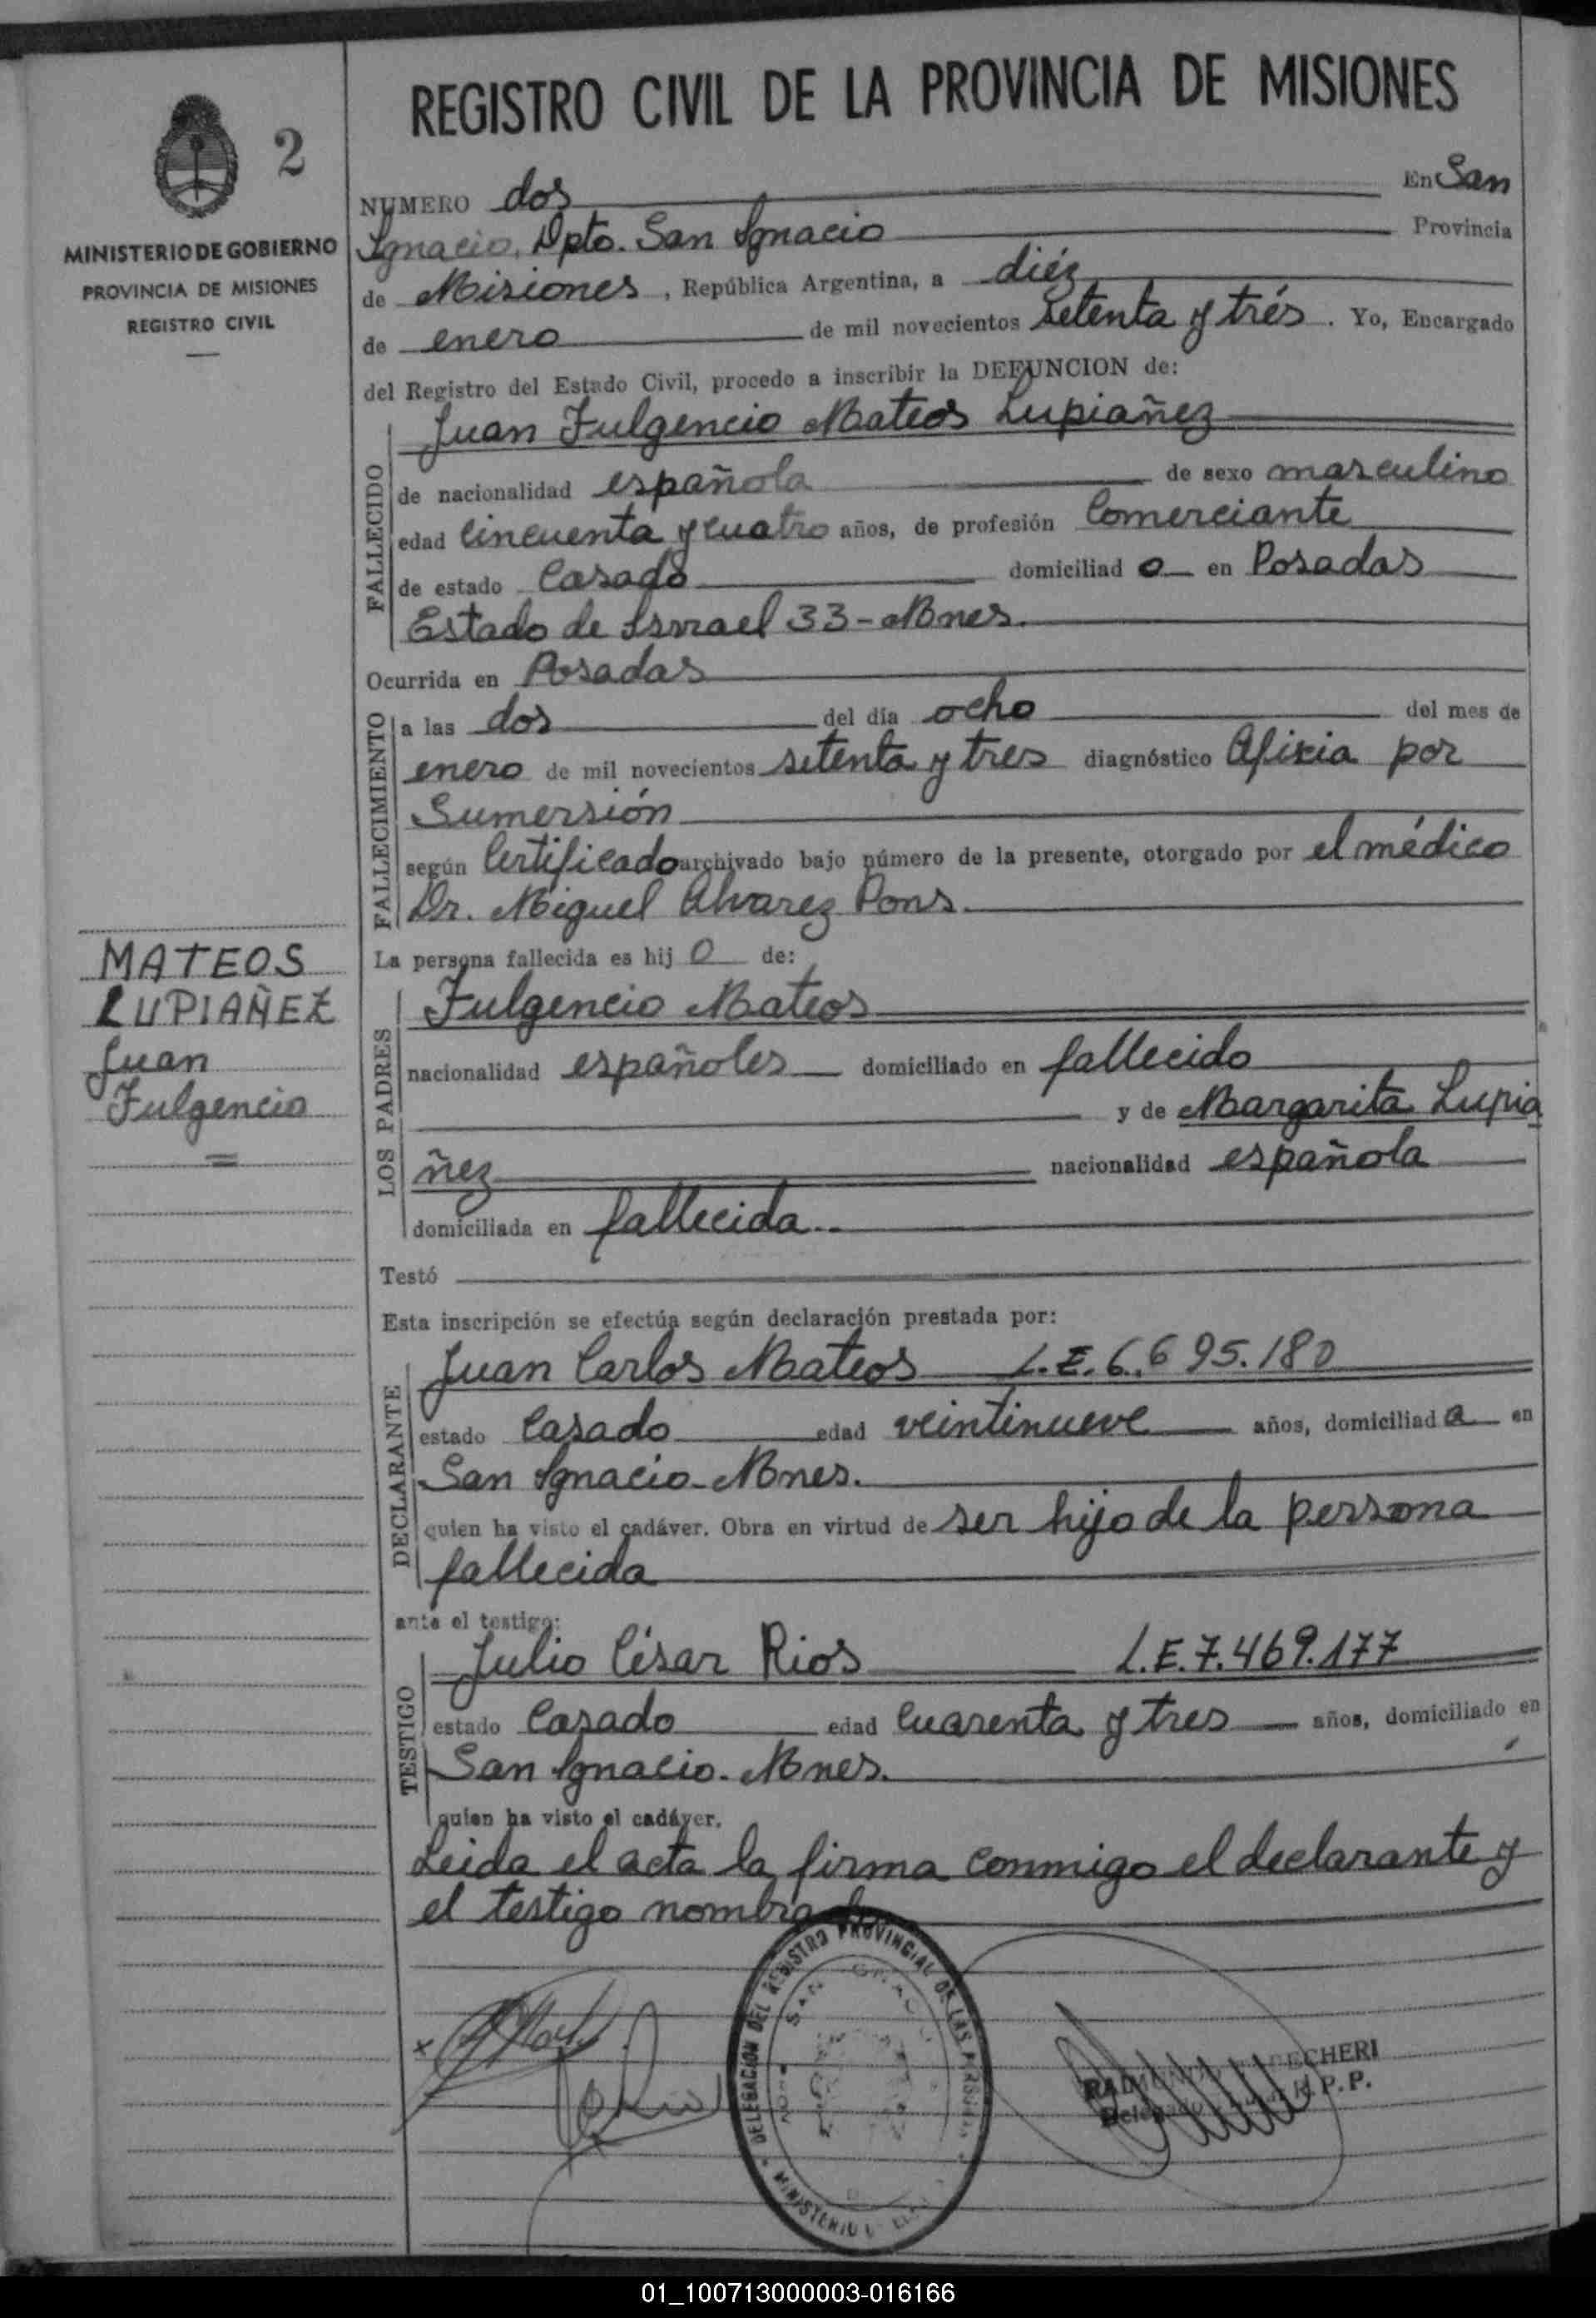 2
MINISTERIO DE GOBIERNO
PROVINCIA DE MISIONES
REGISTRO CIVIL
MATEOS
LUPIAÑEZ
Juan
Fulgencio
REGISTRO CIVIL DE LA PROVINCIA DE MISIONES
NUMERO dos En San
Ignacio, Dpto. San Ignacio Provincia
de Misiones, República Argentina, a diéz
de enero de mil novecientos setenta y trés. Yo, Encargado
del Registro del Estado Civil, procedo a inscribir la DEFUNCION de:
FALLECIDO
Juan Fulgencio Mateos Lupiañez
de nacionalidad española de sexo masculino
edad Cincuenta y cuatro años, de profesión Comerciante
de estado Casado domiciliad o en Posadas
Estado de Isrrael 33-Mnes.
Ocurrida en Posadas
FALLECIMIENTO
a las dos del día ocho del mes de
enero de mil novecientos setenta y tres diagnóstico Afixia por
Sumersión
según Certificado archivado bajo número de la presente, otorgado por el médico
Dr. Miguel Alvarez Pons.
La persona fallecida es hij o de:
LOS PADRES
Fulgencio Mateos
nacionalidad españoles domiciliado en fallecido
y de Margarita Lupia
ñez nacionalidad española
domiciliada en fallecida..
Testó
Esta inscripción se efectúa según declaración prestada por:
DECLARANTE
Juan Carlos Mateos L.E. 6.695.180
estado Casado edad veintinueve años, domiciliad a en
San Ignacio-Mnes.
quien ha visto el cadáver. Obra en virtud de ser hijo de la persona
fallecida
ante el testigo:
TESTIGO
Julio César Rios L.E. 7.469.177
estado Casado edad Cuarenta y tres años, domiciliado en
San Ignacio. Mnes.
quien ha visto el cadáver.
Leida el acta la firma conmigo el declarante y
el testigo nombrado
DELEGACION DEL REGISTRO PROVINCIAL DE LAS PERSONAS
SAN IGNACIO
MINISTERIO
ECHERI
R.P.P.
01_100713000003-016166